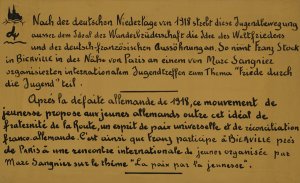 Nach der deutschen Niederlage von 1918 stellt diese Jugendbewegung
ausser dem Ideal des Wandersbrüderschaft die Idee des Weltfriedens
und der deutsch-französischen Aussöhnung an. So nimt Franz Stock
in Bierville in der Nähe von Paris an einem von Marc Sangnier
organisierten internationalen Jugendtreffen zum Thema "Friede durch
die Jugend" teil.
Après la défaite allemande de 1918, ce mouvement de
jeunesse propose aux jeunes allemands outre cet idéal de
fraternité de la Route, un esprit de paix universelle et de réconciliation
franco-allemande. C'est ainsi que Franz participe à Bierville près
de Paris à une rencontre internationale de jeunes organisée par
Marc Sangnier sur le thème "La paix par la jeunesse".